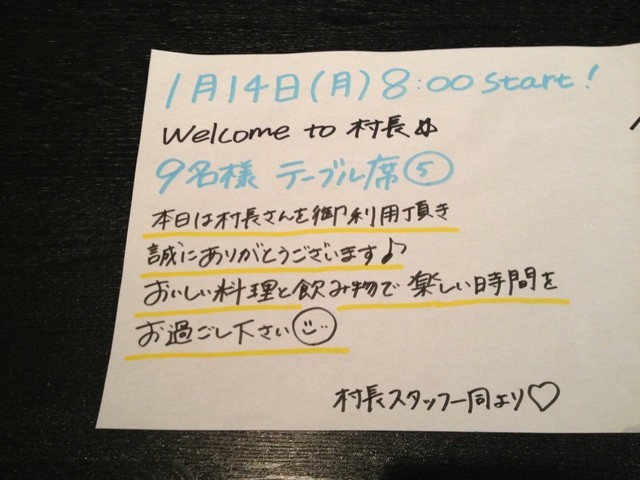 1月14日(月)8:00 Start!
Welcome to 村長ぬ
9名様 テーブル席⑤
本日は村長さんを御利用頂き
誠にありがとうございます♪
おいしい料理と飲み物で楽しい時間を
お過ごし下さい
村長スタッフ一同より♡